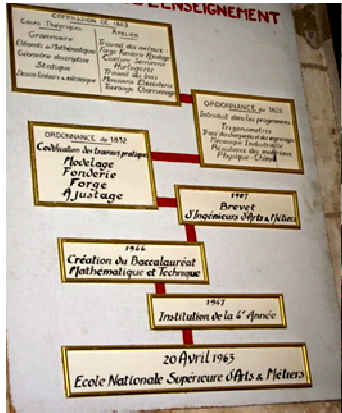 L'ENSEIGNEMENT
COMMISSION DE 1803
Cours Théoriques
Grammaire
Eléments de Mathématiques
Géométrie descriptive
Statique
Dessin linéaire & mécanique
ATELIER
Travail des métaux :
Forge Fonderie Ajustage
Horlogerie
Travail du bois
Menuiserie Ebénisterie
Tournage Charronnage
ORDONNANCE de 1826
Introduit dans les programmes
Trigonométrie
Mécanique Industrielle
Résistance des matériaux
Physique - Chimie
ORDONNANCE de 1832
Codification des travaux pratiques
Modelage
Fonderie
Forge
Ajustage
1907
Brevet
d'Ingénieurs d'Arts & Métiers
Création du Baccalauréat
Mathématique et Technique
1947
Institution de la 4e Année
20 Avril 1963
Ecole Nationale Supérieure d'Arts & Métiers